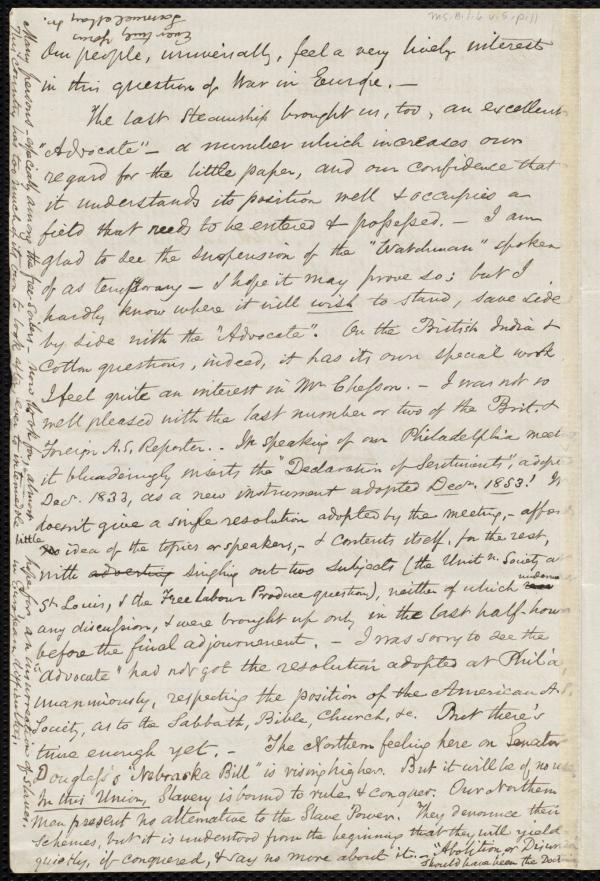 Our people, universally, feel a very lively interest
in this question of War in Europe. —
The last Steamship brought us, too, an excellent
"Advocate" — a number which increases our
regard for the little paper, and our confidence that
it understands its position well & occupies a
field that needs to be entered & possessed. — I am
glad to see the suspension of the "Watchman" spoken
of as temporary — I hope it may prove so; but I
hardly know where it will wish to stand, save side
by side with the "Advocate". On the British India &
Cotton questions, indeed, it has its own special work.
I feel quite an interest in Mr. Chesson. — I was not so
well pleased with the last number or two of the Brit. &
Foreign A. S. Reporter. . In speaking of our Philadelphia meet
it blunderingly inserts the "Declaration of Sentiments", adop
Decr. 1833, as a new instrument adopted Decr. 1853! It
doesn't give a single resolution adopted by the meeting, — affor
little idea of the topics or speakers, — & contents itself, for the rest,
with adverting singling out two subjects (the Unitn. Society a
St. Louis, & the Free Labour Produce question), neither of which
any discussion, & were brought up only in the last half-hour
before the final adjournment. — I was sorry to see the
"Advocate" had not got the resolution adopted at Phil'a,
unanimously, respecting the position of the American A. S.
Society, as to the Sabbath, Bible, Church, &c. But there's
time enough yet. — The Northern feeling here on Senator
Douglass's "Nebraska Bill" is rising higher. But it will be of no use
In this Union, Slavery is bound to rule & conquer. Our Northern
men present no alternative to the Slave Power. They denounce their
schemes, but it is understood from the beginning that they will yield
quietly, if conquered, & say no more about it. — "Abolition or Disun
should have been the Doc
Many persons, especially among the Free Soilers — now look for, almost hope for, an insurrection of Slaves.
This Country has too much of its own to look after, ever to intermeddle in European disputes.
Ever truly yours
Samuel May Jr.
Ms.B.1.6 v.5.p.11